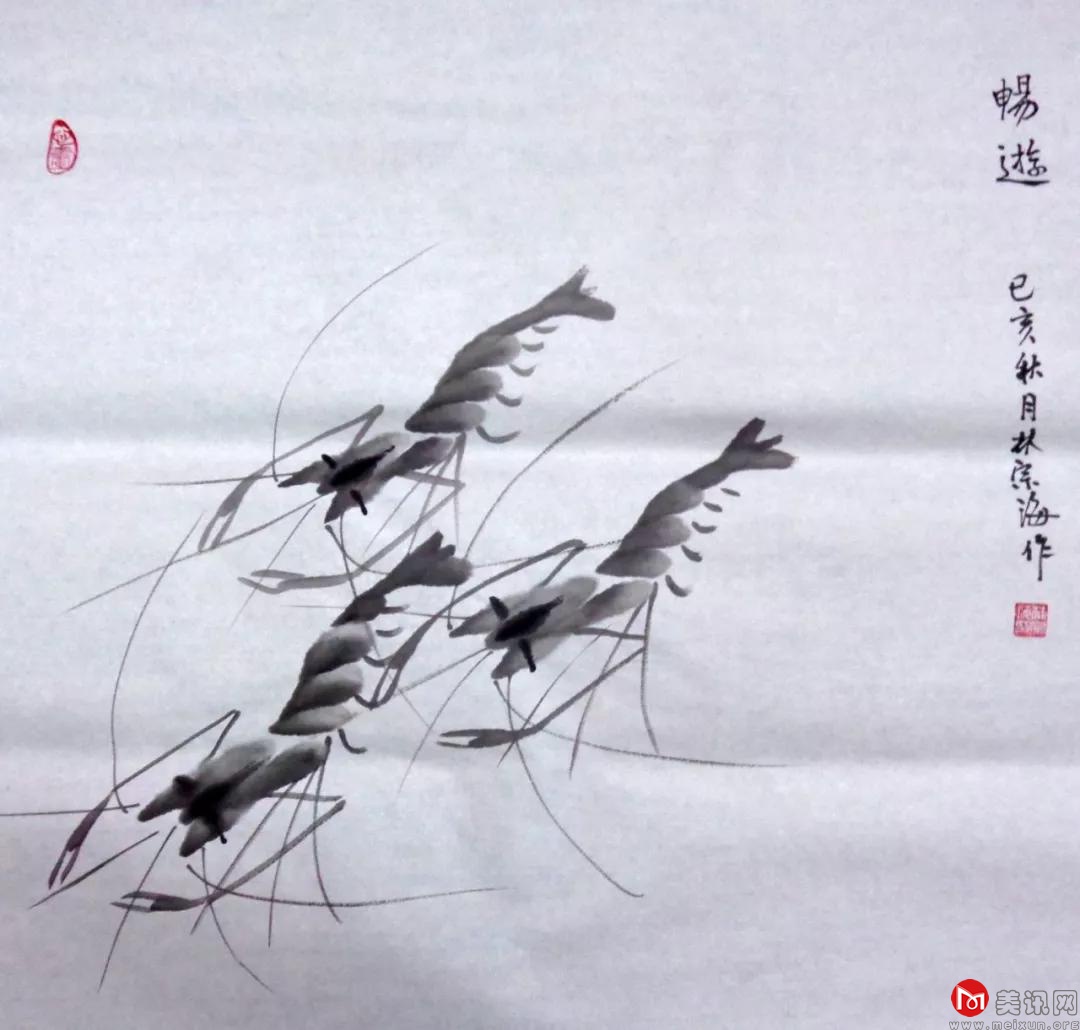 暢遊
己亥秋月林宗海作
美讯网
www.meixun.org